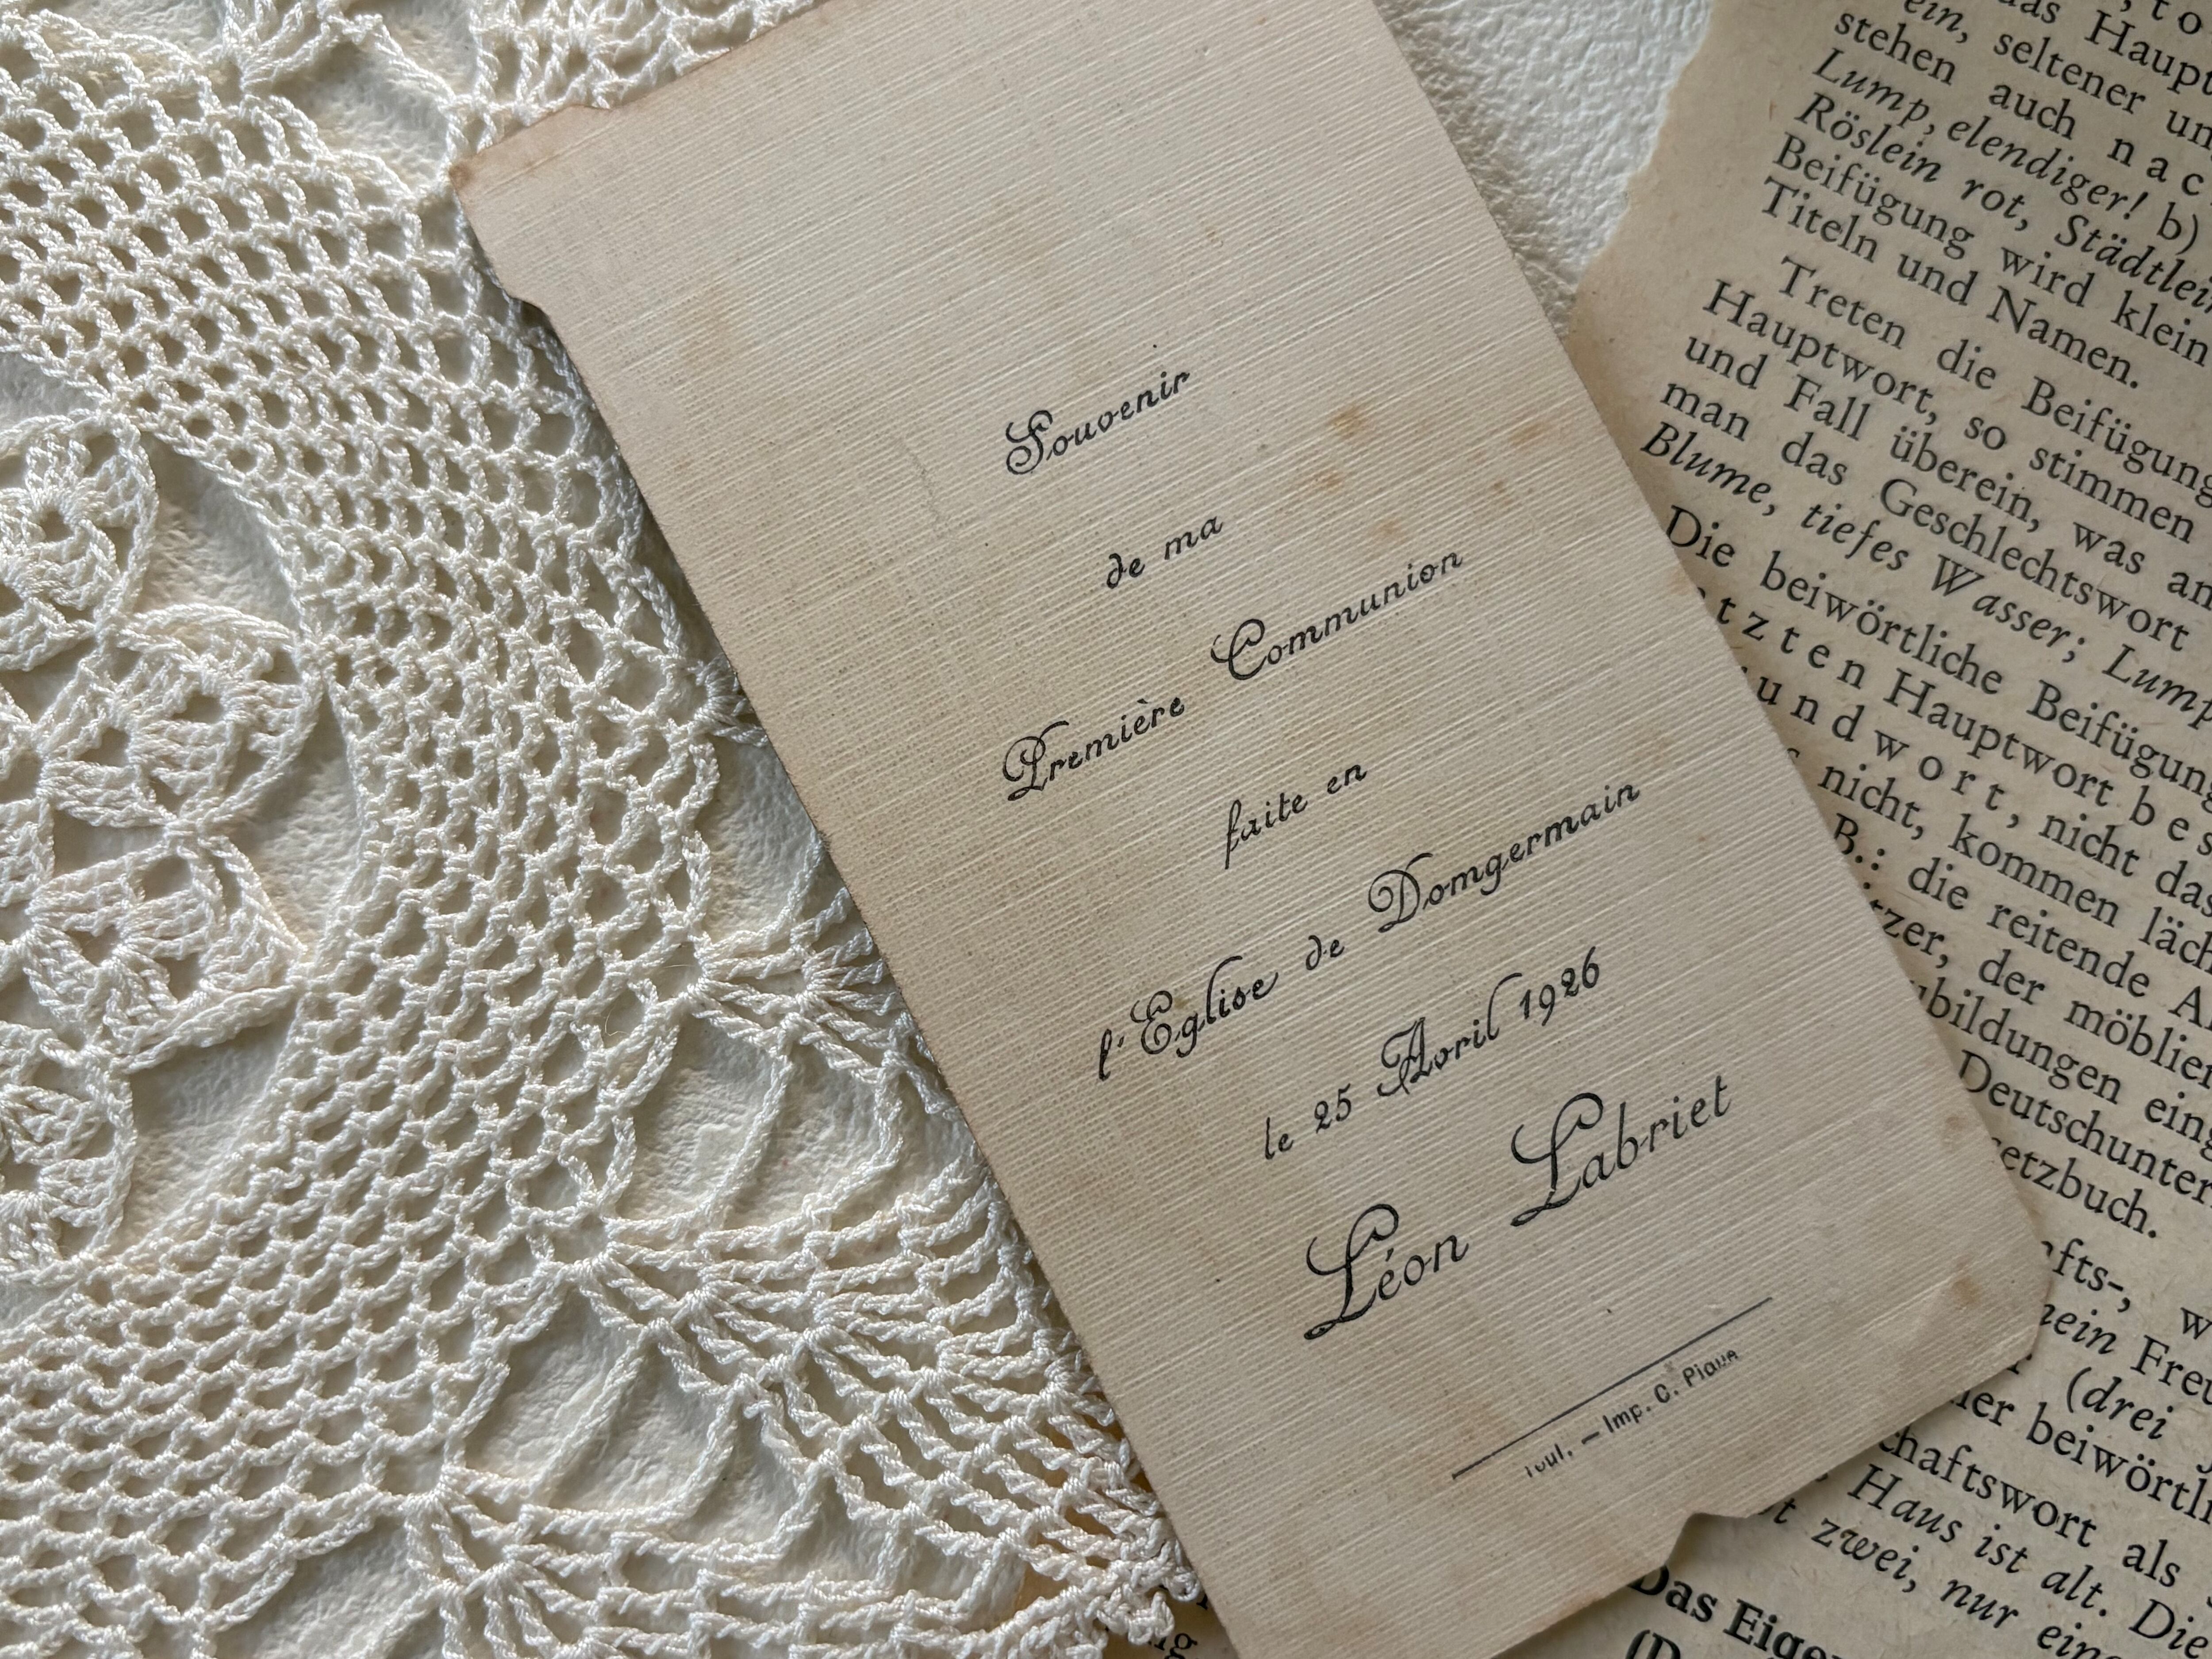 Souvenir
de ma
Première Communion
faite en
l'Eglise de Domgermain
le 25 Avril 1926
Léon Labriet
Toul. — Imp. C.
das Haupt
ein, seltener
stehen auch
Lump, elendiger! b)
Röslein rot, Städtlein
Beifügung wird klein
Titeln und Namen.
Treten die Beifügung
Hauptwort, so stimmen
und Fall überein, was
man das Geschlechtswort
Blume, tiefes Wasser; Lump
Die beiwörtliche Beifügung
Hauptwort
nicht, nicht das
kommen
B.: die reitende
der
Deutschunter
setzbuch.
mein
(drei
beiwörtli
als
Haus ist alt. Die
zwei, nur
Das